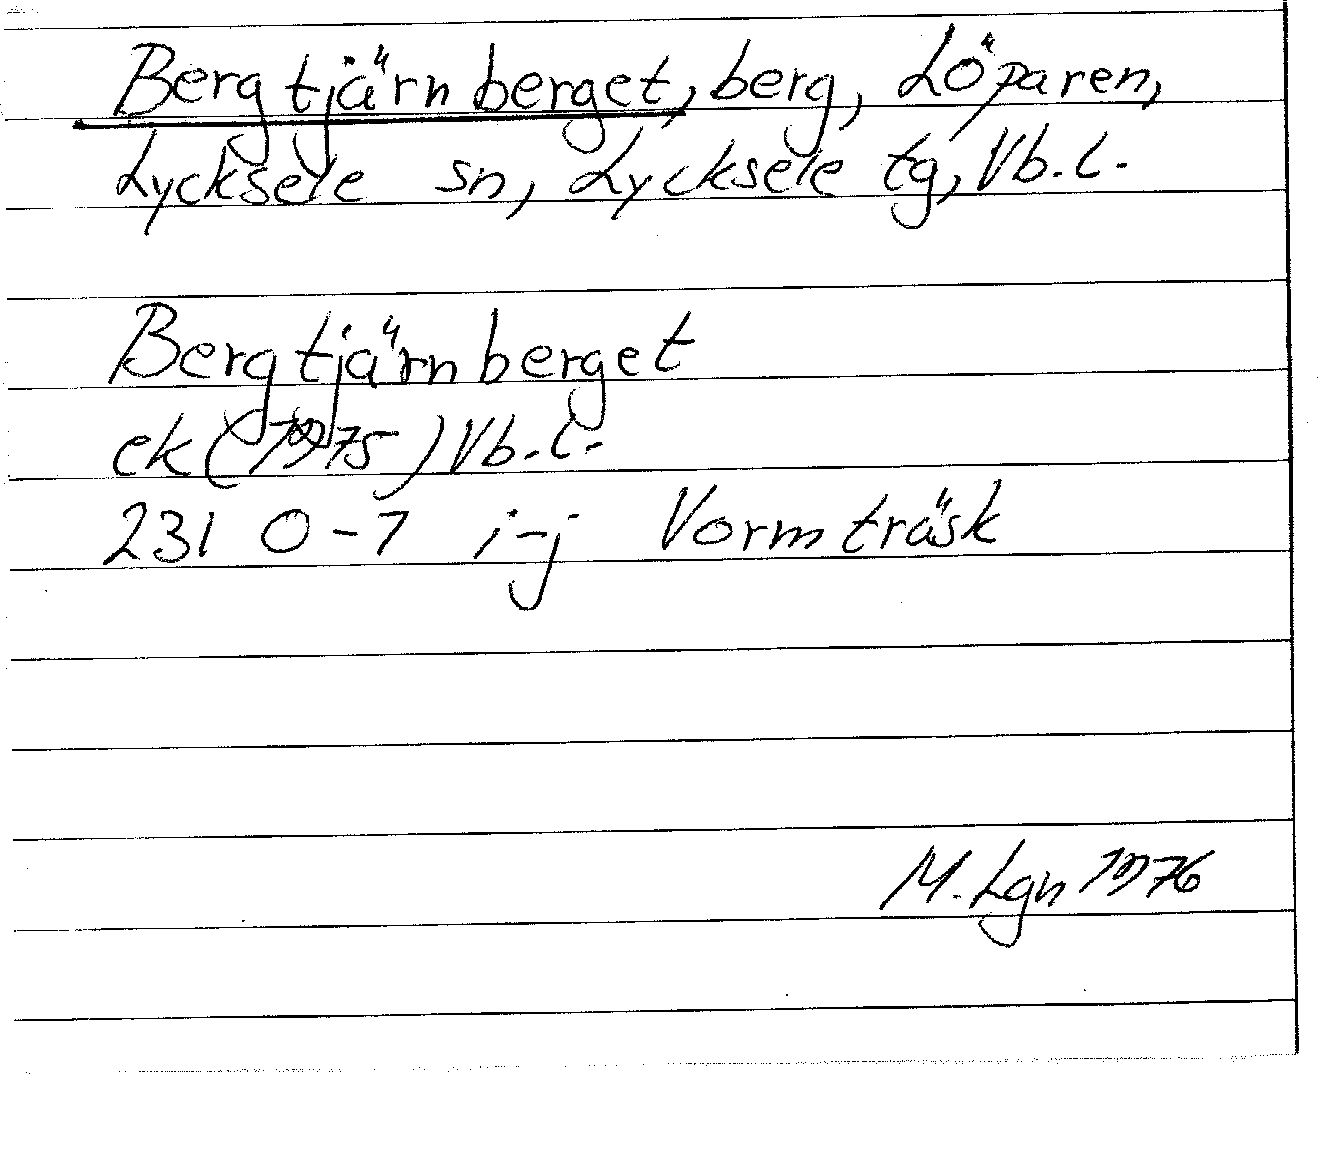 Bergtjärnberget, berg, Löparen,
Lycksele sn, Lycksele tg, Vb.l.
Bergtjärnberget
ek (1975) Vb.l.
231 0-1 i-j Vormträsk
M. Lgn 1976